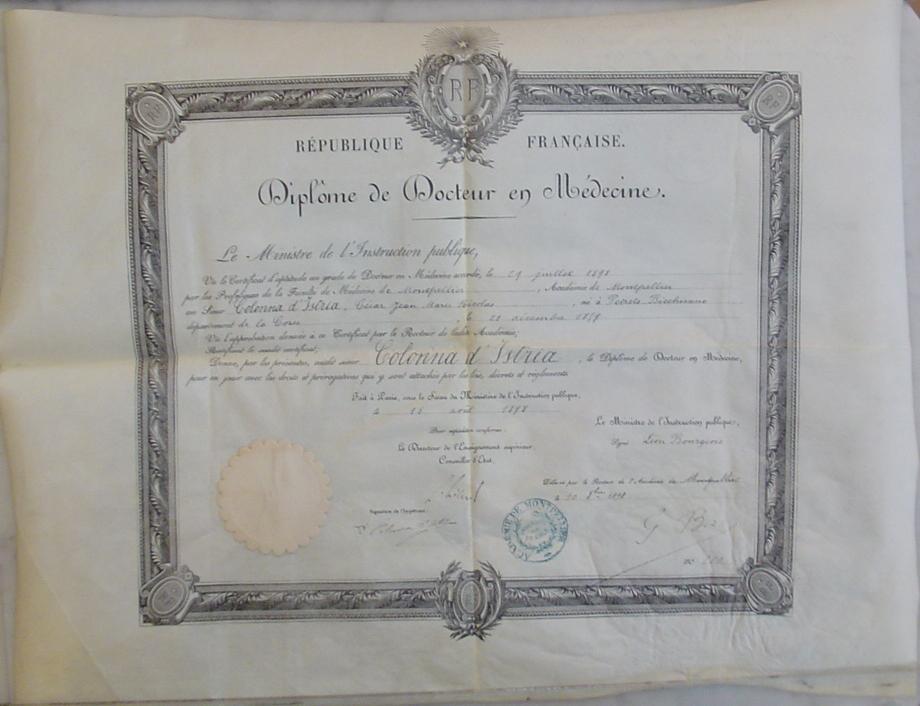 RF
RÉPUBLIQUE FRANÇAISE.
Diplôme de Docteur en Médecine.
Le Ministre de l'Instruction publique,
Vu le Certificat d'aptitude au grade de Docteur en Médecine accordé, le 29 juillet 1898
par les Professeurs de la Faculté de Médecine de Montpellier, Académie de Montpellier
au Sieur Colonna d'Istria, César Jean Marie Nicolas, né à
département de la Corse, le décembre
Vu l'approbation donnée à ce Certificat par le Recteur de ladite Académie;
Ratifiant le susdit certificat;
Donne, par les présentes, audit sieur Colonna d'Istria, le Diplôme de Docteur en Médecine,
pour en jouir avec les droits et prérogatives qui y sont attachés par les lois, décrets et règlements.
Fait à Paris, sous le Sceau du Ministère de l'Instruction publique,
a août 1898
Pour expédition conforme:
Le Directeur de l'Enseignement supérieur,
Conseiller d'Etat.
Le Ministre de l'Instruction publique,
Signé Léon Bourgeois
Délivré par le Recteur de l'Académie de Montpellier
Signature de l'Impétrant:
ACADÉMIE DE MONTPELLIER
N°